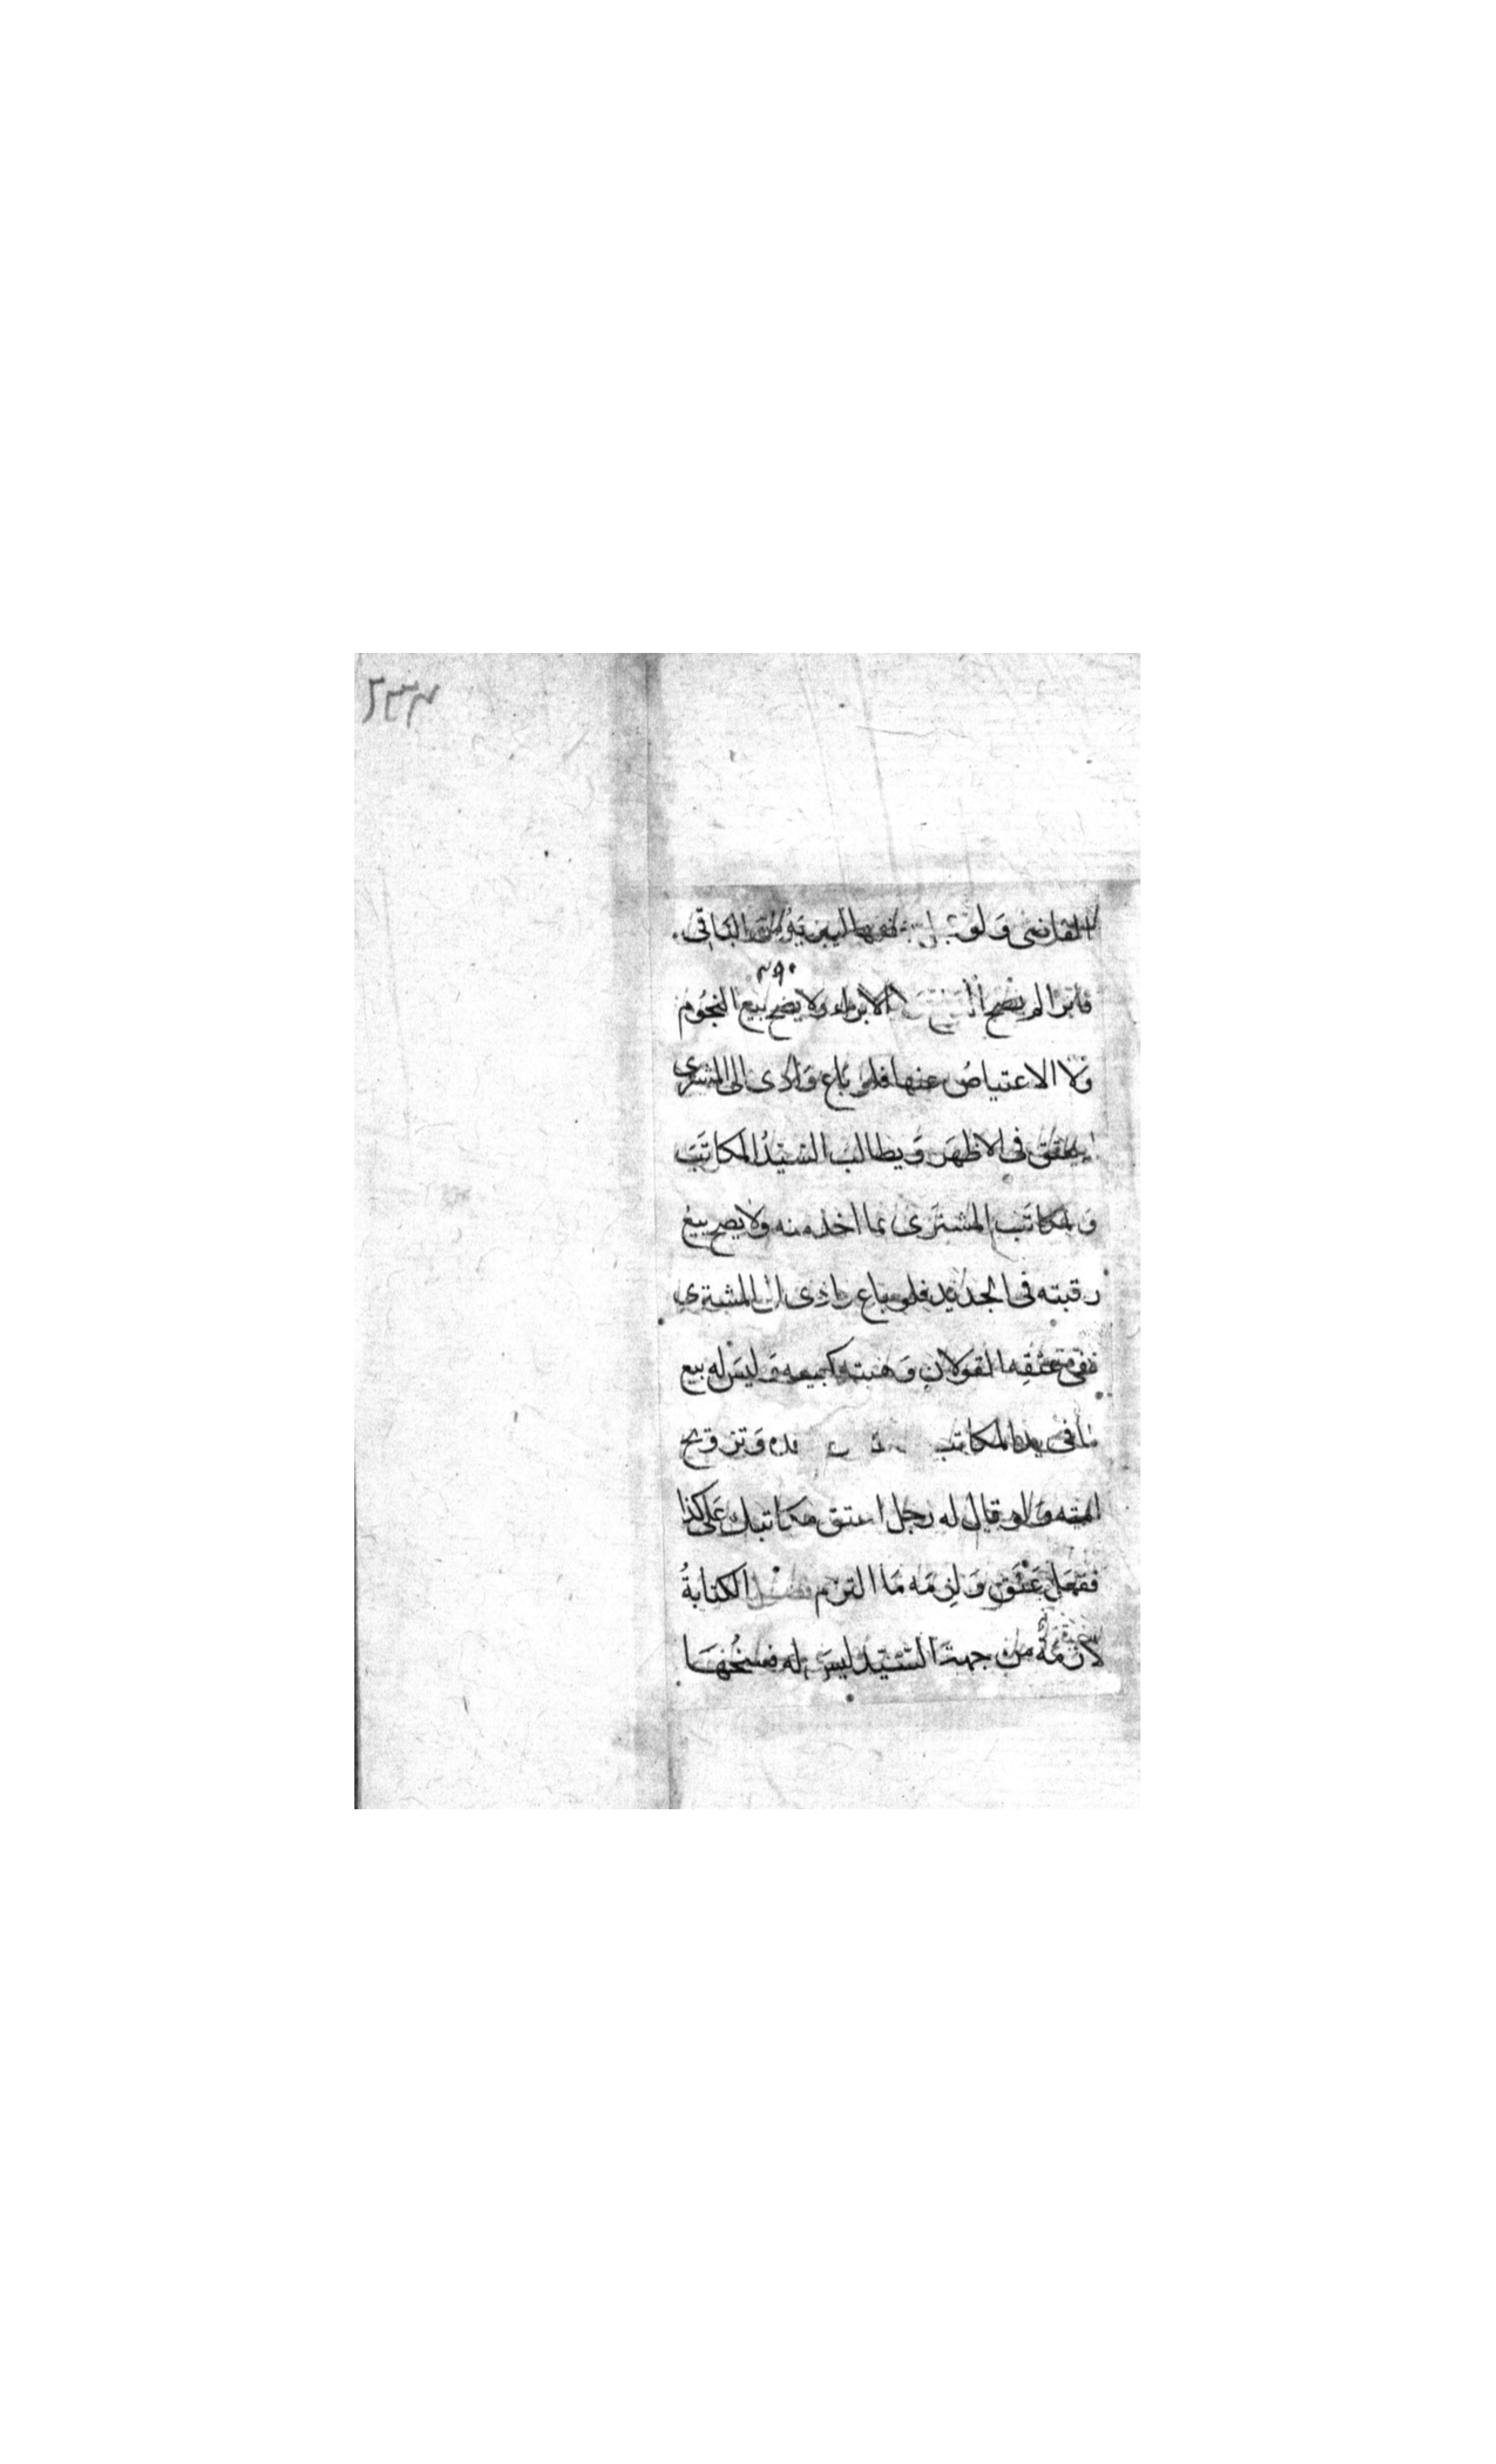 ٢٣٣
القاضى وَلو بعضها ليبرئه من الباقى
فابرا لم يصح الدفع ولا الابراء ولا يصح بيع النجُوم
وَلا الاعتياضُ عنها فلو بَاع وَادى الى المشترى
لم يعتق فى الاظهَر وَيطالب السَّيّدُ المكاتَبَ
وَالمكاتَب المشتَرى بما اخذه منه ولا يصح بيع
رقبته فى الجديد فلو باع وادى الى المشترى
ففى عتقِه القولان وَهبته كبيعه وَليسَ له بيع
مَا فى يد المكاتب وتزويج
امته وَلو قال له رجل اعتق مكاتبك عَلى كذا
ففعَل عَتَقَ وَلزمَه مَا التزم فصْل الكتابةُ
لازمَة من جهة السَّيّد ليسَ له فسخُهَا